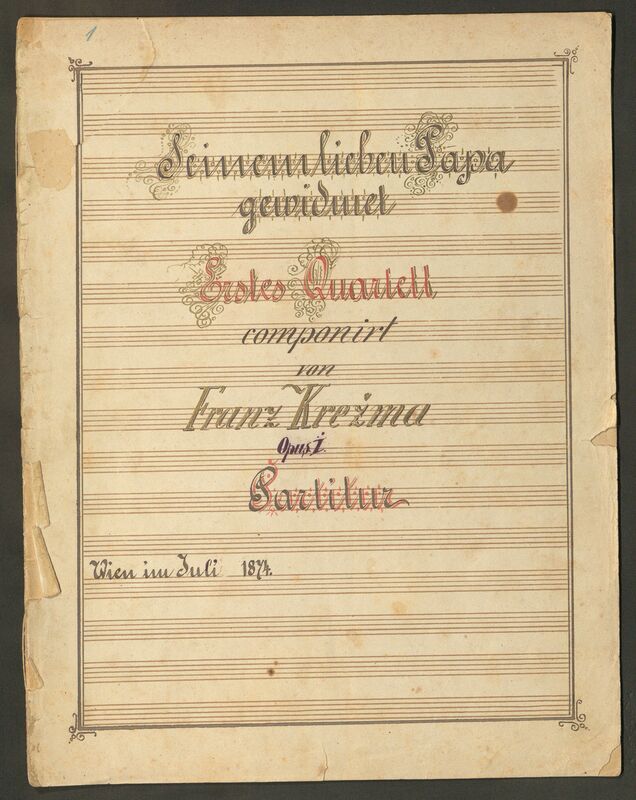 1
Seinem lieben Papa
gewidmet
Erstes Quartett
componirt
von
Franz Krežma
Opus I.
Partitur
Wien im Juli 1874.